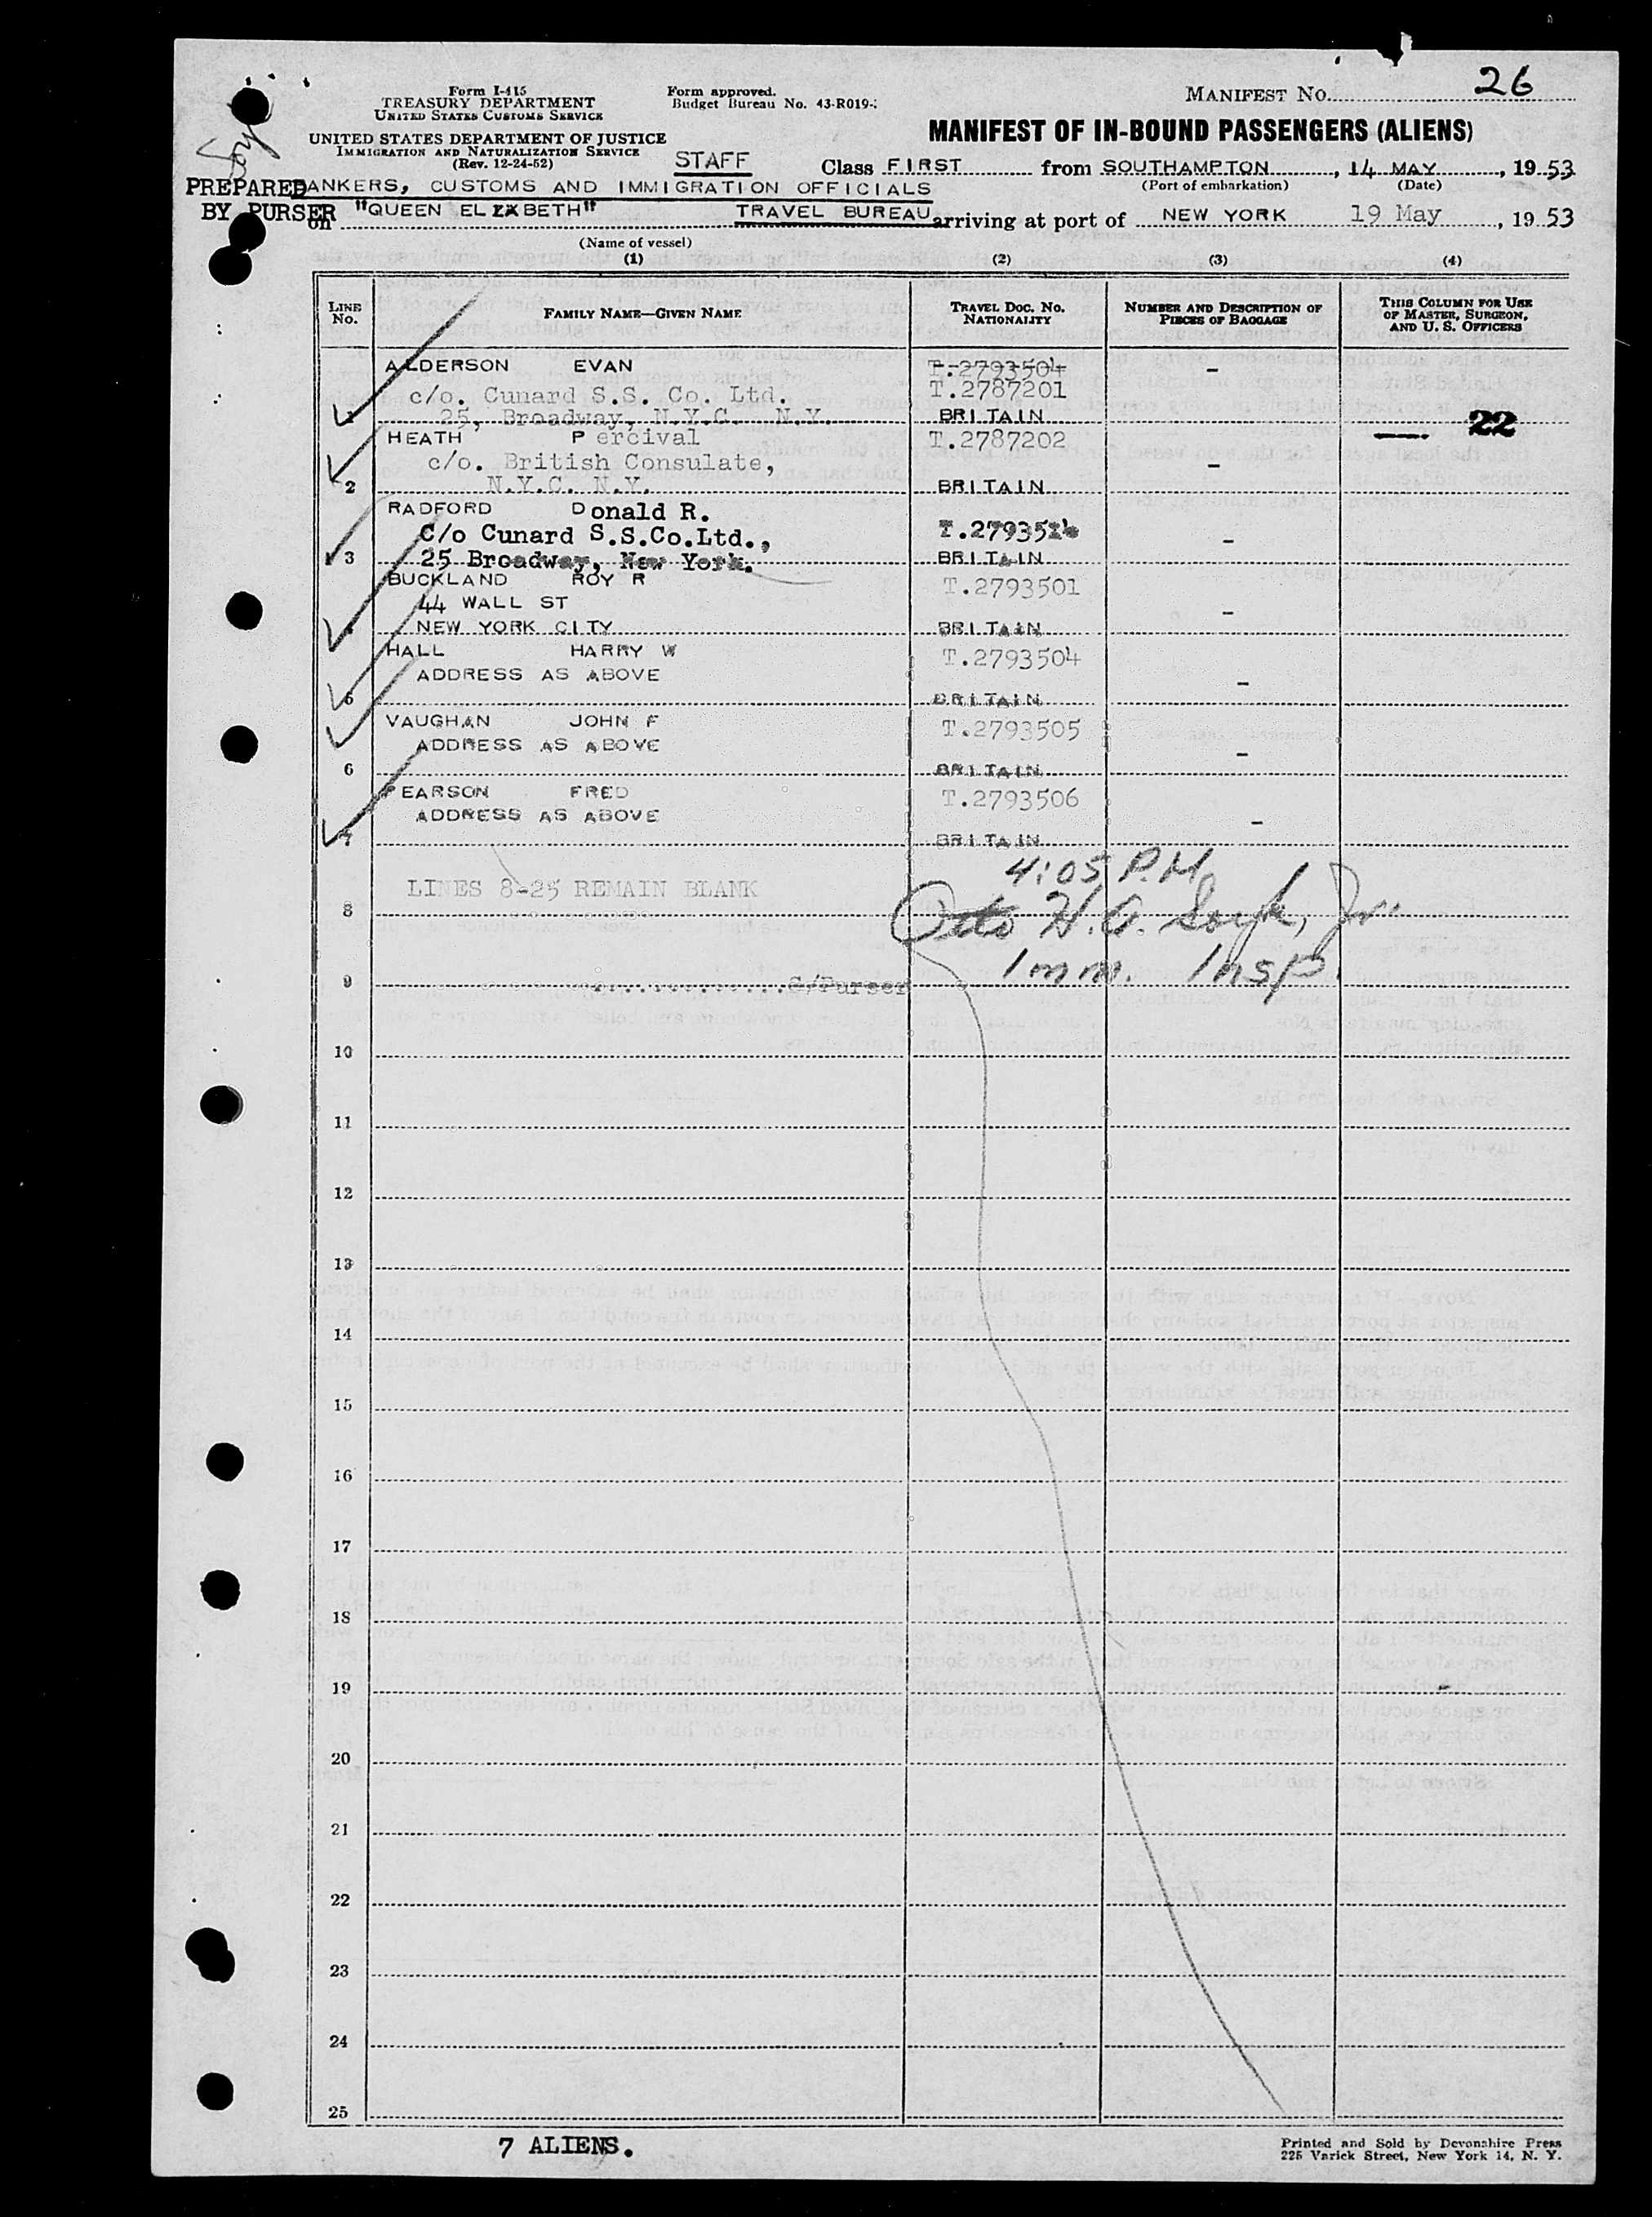 Form I-415
TREASURY DEPARTMENT
UNITED STATES CUSTOMS SERVICE
UNITED STATES DEPARTMENT OF JUSTICE
IMMIGRATION AND NATURALIZATION SERVICE
(Rev. 12-24-52)
Form approved.
Budget Bureau No. 43-R019-
MANIFEST NO. 26
MANIFEST OF IN-BOUND PASSENGERS (ALIENS)
STAFF Class FIRST from SOUTHAMPTON, 14 MAY, 19 53
(Port of embarkation) (Date)
PREPARED BANKERS, CUSTOMS AND IMMIGRATION OFFICIALS
BY PURSER on "QUEEN ELIZABETH" TRAVEL BUREAU arriving at port of NEW YORK 19 May, 19 53
(Name of vessel)
(1) (2) (3) (4)
LINE No. FAMILY NAME—GIVEN NAME TRAVEL DOC. NO. NATIONALITY NUMBER AND DESCRIPTION OF PIECES OF BAGGAGE THIS COLUMN FOR USE OF MASTER, SURGEON, AND U. S. OFFICERS
ALDERSON EVAN T.2793504 -
c/o. Cunard S.S. Co. Ltd. T.2787201
25, Broadway, N.Y.C. N.Y. BRITAIN
HEATH Percival T.2787202 — 22
c/o. British Consulate, -
2 N.Y.C. N.Y. BRITAIN
RADFORD Donald R.
C/o Cunard S.S.Co.Ltd., T.2793514 -
3 25 Broadway, New York. BRITAIN
BUCKLAND ROY R T.2793501
44 WALL ST -
NEW YORK CITY BRITAIN
HALL HARRY W T.2793504
ADDRESS AS ABOVE -
5 BRITAIN
VAUGHAN JOHN F T.2793505
ADDRESS AS ABOVE -
6 BRITAIN
PEARSON FRED T.2793506
ADDRESS AS ABOVE -
7 BRITAIN
4:05 P.M.
LINES 8-25 REMAIN BLANK
8 Otto H.A. Soyk, Jr.
Imm. Insp.
9 S/Purser
10
11
12
13
14
15
16
17
18
19
20
21
22
23
24
25
7 ALIENS.
Printed and Sold by Devonshire Press
225 Varick Street, New York 14, N. Y.